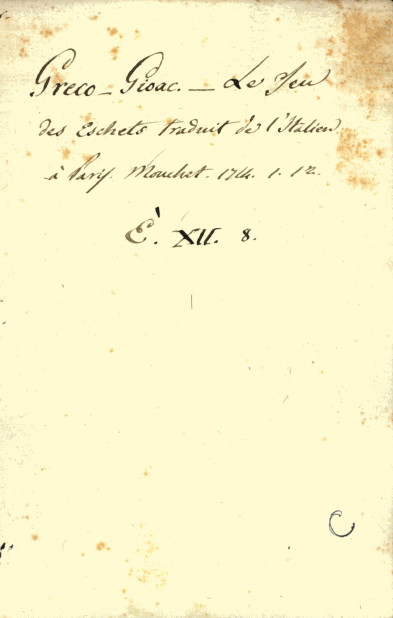 Greco - Gioac. - Le Jeu
des Eschets traduit de l'Italien
à Paris. Mouchet. 1714. 1. 12.
È. XII. 8.
C